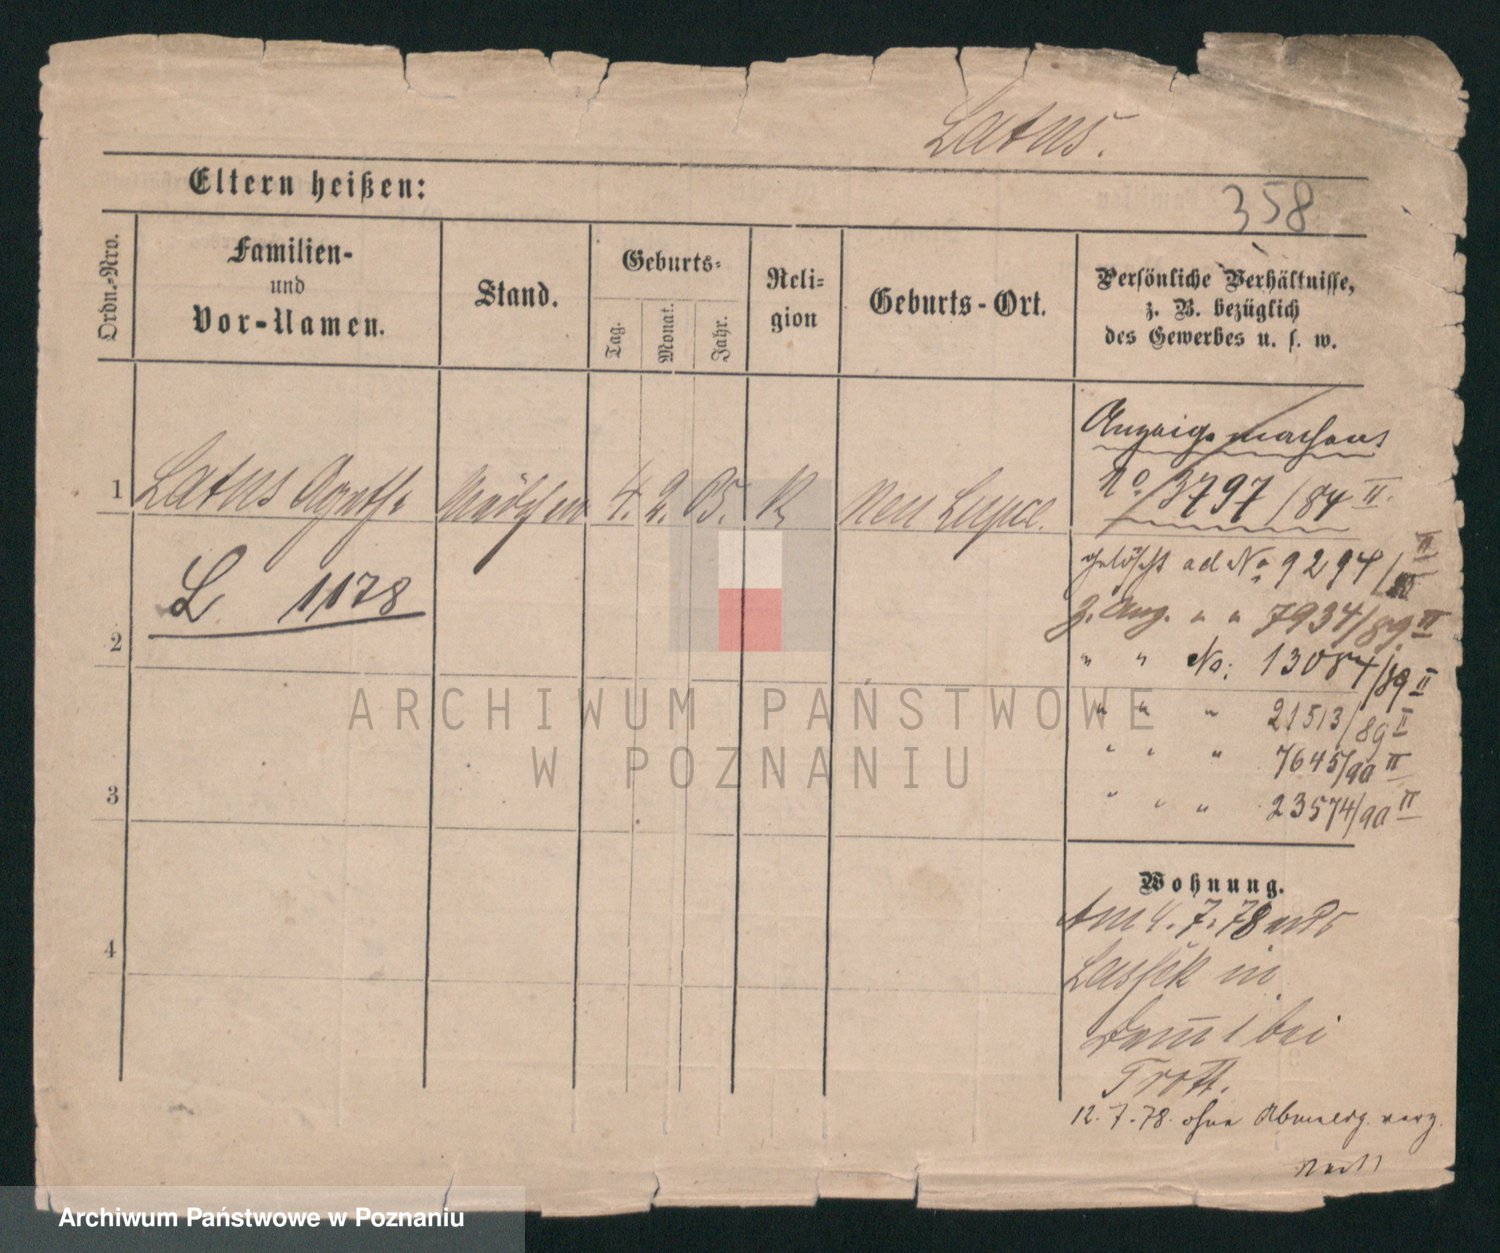 Latus.
358
Eltern heißen:
Ordn.-Nro.
Familien-
und
Vor-Namen.
Stand.
Geburts-
Tag.
Monat.
Jahr.
Reli-
gion
Geburts-Ort.
Persönliche Verhältnisse,
z. B. bezüglich
des Gewerbes u. s. w.
1
Latus Agnes
Mädchen
4. 2. 65.
K
Neu
No. 3797/84 II.
gelöscht ad No. 9294/
L 1178
2
Z. Aug. " " 7934/89 II
" " No: 13084/89 II
" " " 21513/89 II
" " " 7645/90 II
" " " 23574/90 II
3
4
Wohnung.
Am 4.7.78 
in
Dom 1 bei
Trott.
12.7.78. ohne verz.
nach
ARCHIWUM PAŃSTWOWE
W POZNANIU
Archiwum Państwowe w Poznaniu